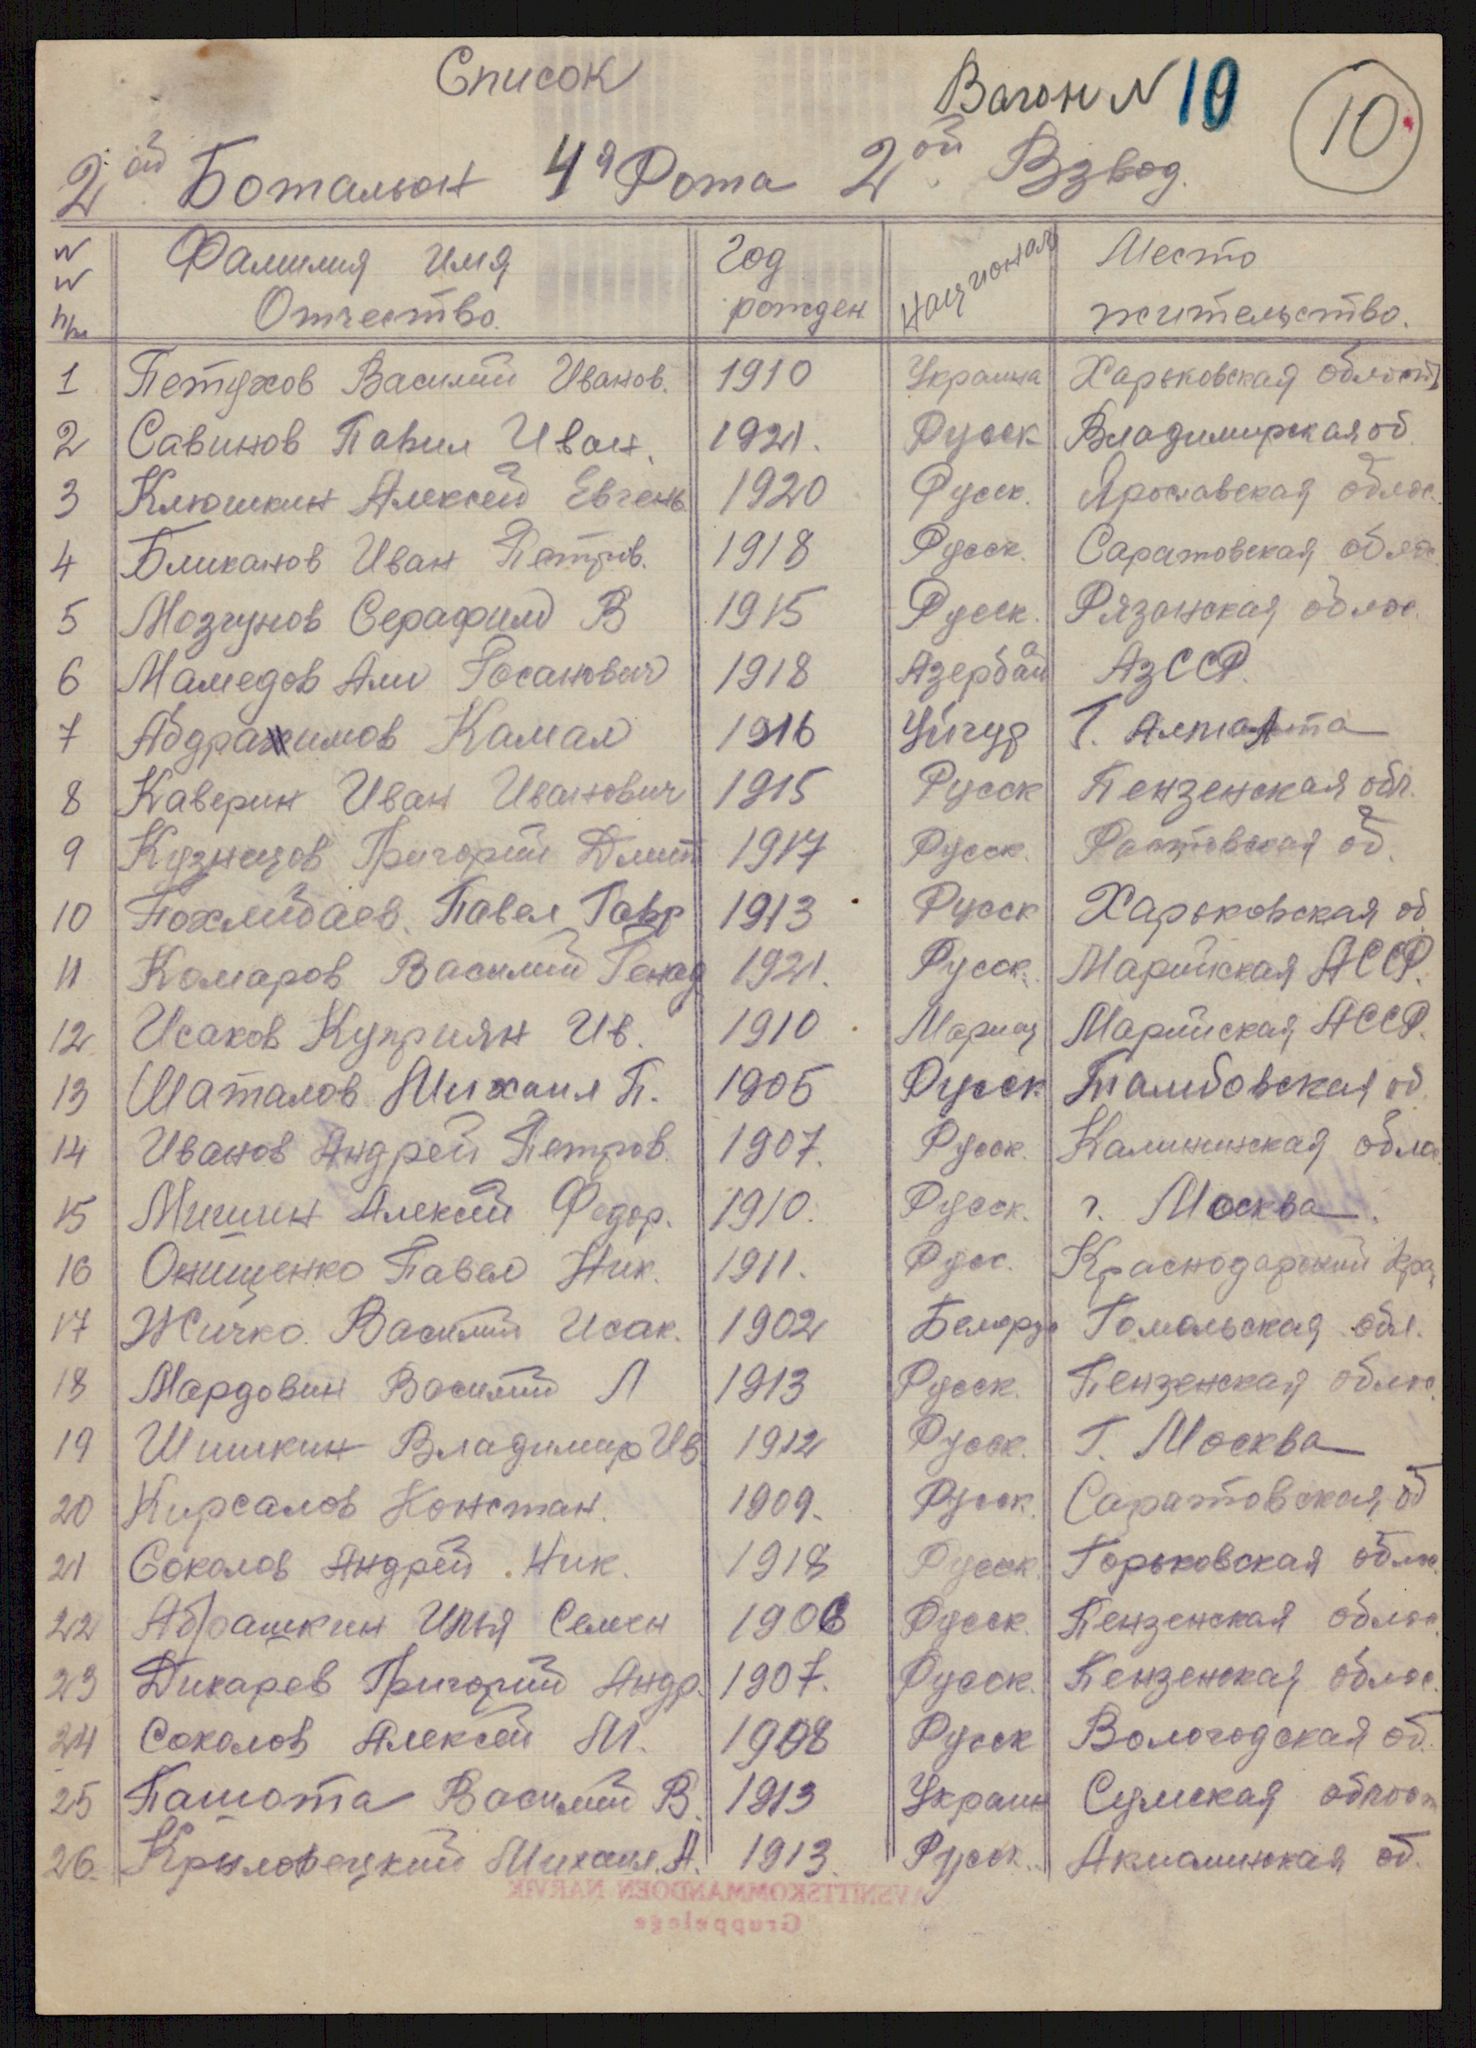 Список
Вагон N 10
10
2ой Ботальон 4я Рота 2ой Взвод.
N N п/п Фамилия имя Отчество. Год рожден Национал Место жительство.
1 Петухов Василий Иванов. 1910 Украина Харьковская область
2 Савинов Павил Иван. 1921. Русск Владимирская об.
3 Клюшкин Алексей Евгень. 1920 Русск. Ярославская облас.
4 Бликанов Иван Петров. 1918 Русск. Саратовская облас
5 Мозгунов Серафим В 1915 Русск. Рязанская облас.
6 Мамедов Али Гасанович 1918 Азербай АзССР.
7 Абдрахимов Камал 1916 Уйгур Г. Алмаата
8 Каверин Иван Иванович 1915 Русск Пензенская обл.
9 Кузнецов Григорий Дмит 1917 Русск. Ростовская об.
10 Похлибаев. Павел Гавр 1913 Русск Харьковская об
11 Комаров Василий Генад 1921. Русск. Марийская АССР.
12 Исаков Куприян Ив. 1910 Мариец Марийская АССР.
13 Шаталов Михаил П. 1905 Русск Тамбовская об.
14 Иванов Андрей Петров. 1907. Русск. Калининская облас
15 Мишин Алексей Федор. 1910. Русск. г. Москва.
16 Онищенко Павел Ник. 1911. Русс. Краснодарский Кра
17 Жичко. Василий Исак. 1902 Белорус Гомельская обл.
18 Мардовин Василий Л 1913 Русск. Пензенская облас.
19 Шишкин Владимир Ив. 1912 Русск. Г. Москва
20 Кирсалов Констан. 1909. Русск. Саратовская об
21 Соколов Андрей Ник. 1918 Русск. Горьковская облас.
22 Абрашкин Илья Семен 1906 Русск. Пензенская облас.
23 Дикарев Григорий Андр. 1907. Русск. Пензенская облас.
24 Соколов Алексей М. 1908 Русск Вологодская об.
25 Пашота Василий В. 1913 Украин Сумская област
26. Крыловецкий Михаил. А. 1913. Русск. Акмалинская об.
AVSNITTSKOMMANDOEN NARVIK
Gruppelege